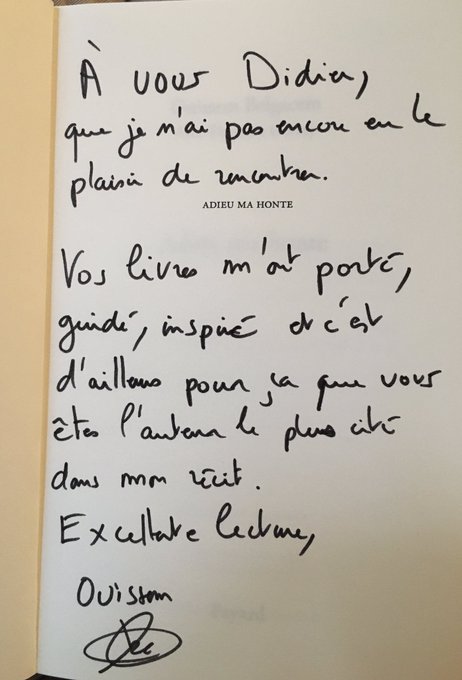 À vous Didier,
que je n'ai pas encore eu le
plaisir de rencontrer.
ADIEU MA HONTE
Vos livres m'ont porté,
guidé, inspiré et c'est
d'ailleurs pour ça que vous
êtes l'auteur le plus cité
dans mon récit.
Excellente lecture,
Ouissem